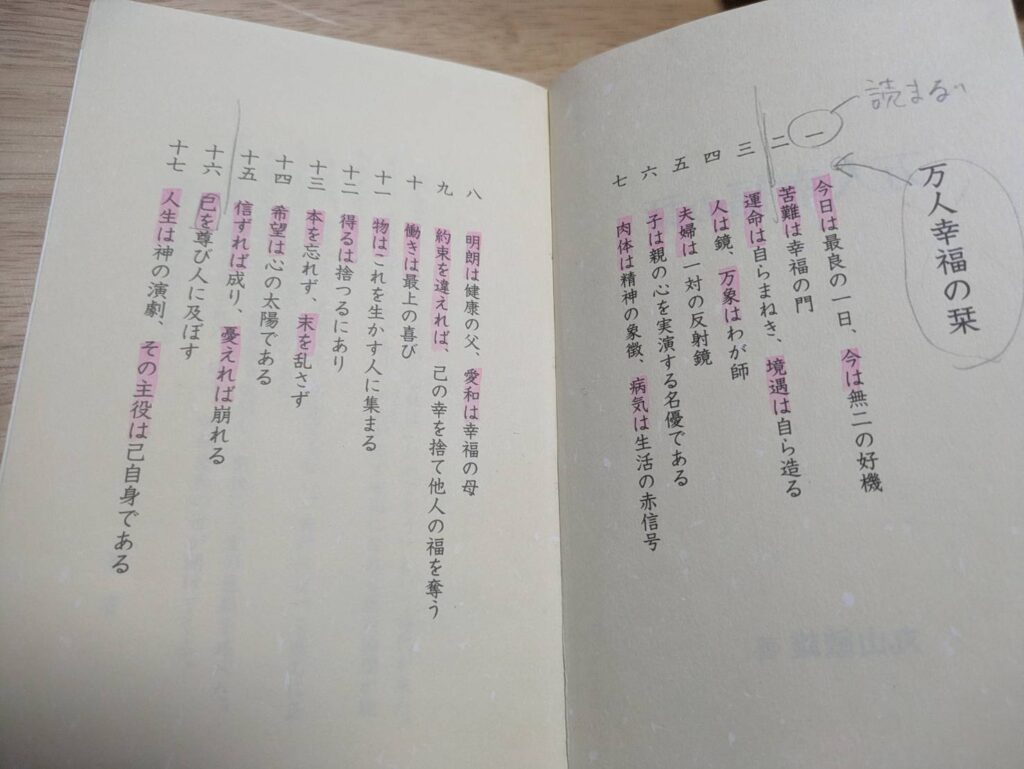 読まない
万人幸福の栞
一 今日は最良の一日、今は無二の好機
二 苦難は幸福の門
三 運命は自らまねき、境遇は自ら造る
四 人は鏡、万象はわが師
五 夫婦は一対の反射鏡
六 子は親の心を実演する名優である
七 肉体は精神の象徴、病気は生活の赤信号
八 明朗は健康の父、愛和は幸福の母
九 約束を違えれば、己の幸を捨て他人の福を奪う
十 働きは最上の喜び
十一 物はこれを生かす人に集まる
十二 得るは捨つるにあり
十三 本を忘れず、末を乱さず
十四 希望は心の太陽である
十五 信ずれば成り、憂えれば崩れる
十六 己を尊び人に及ぼす
十七 人生は神の演劇、その主役は己自身である